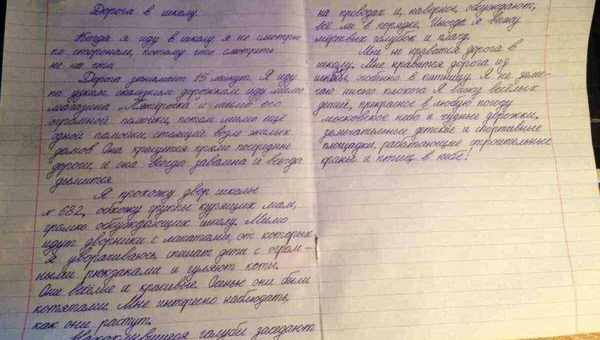 Дорога в школу.
Когда я иду в школу я не смотрю
по сторонам, потому что смотреть
не на что.
Дорога занимает 15 минут. Я иду
по узким скользким дорожкам иду мимо
магазина Пятёрочка и мимо его
огромной помойки, потом мимо ещё
одной помойки, стоящей возле жилых
домов. Она красуется прямо посередине
дороги, и она всегда завалена и всегда
дымится.
Я прохожу двор школы
№ 682, обхожу группы курящих мам,
громко обсуждающих школу. Мимо
идут дворники с лопатами, от которых
я уворачиваюсь, спешат дети с огром-
ными рюкзаками и гуляют коты.
Они весёлые и красивые. Осенью они были
котятами. Мне интересно наблюдать,
как они растут.
голуби заседают
на проводах и, наверное, обсуждают,
всё ли в порядке. Иногда я вижу
мёртвых голубей и плачу.
Мне не нравится дорога в
школу. Мне нравится дорога из
школы, особенно в пятницу. Я не заме-
чаю ничего плохого. Я вижу весёлых
детей, прекрасное в любую погоду
московское небо и чудные дорожки,
замечательные детские и спортивные
площадки, работающие строительные
краны и птиц в небе!